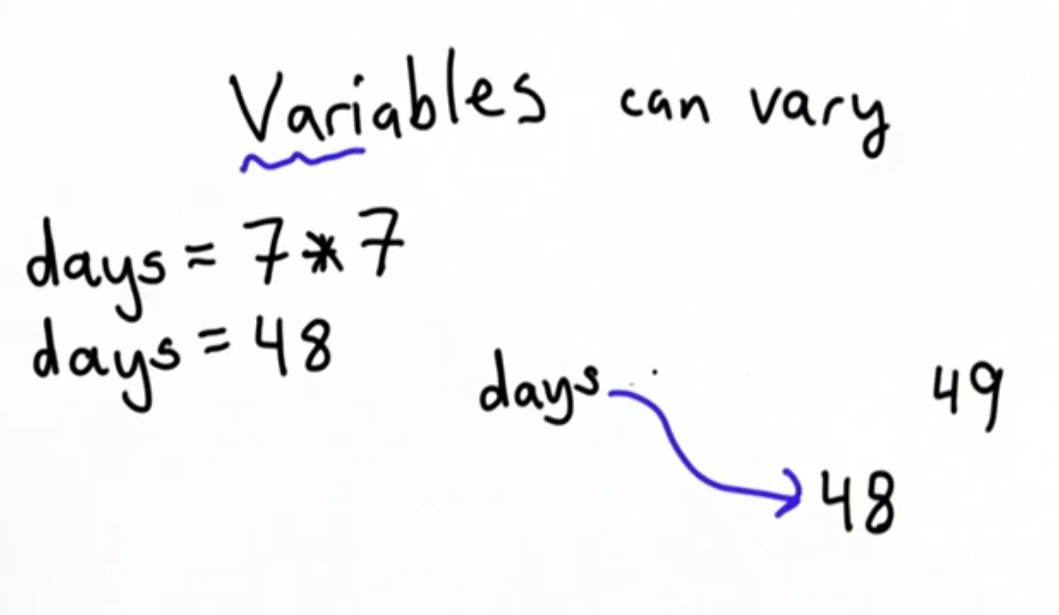 Variables can vary
days = 7*7
days = 48
days
49
48